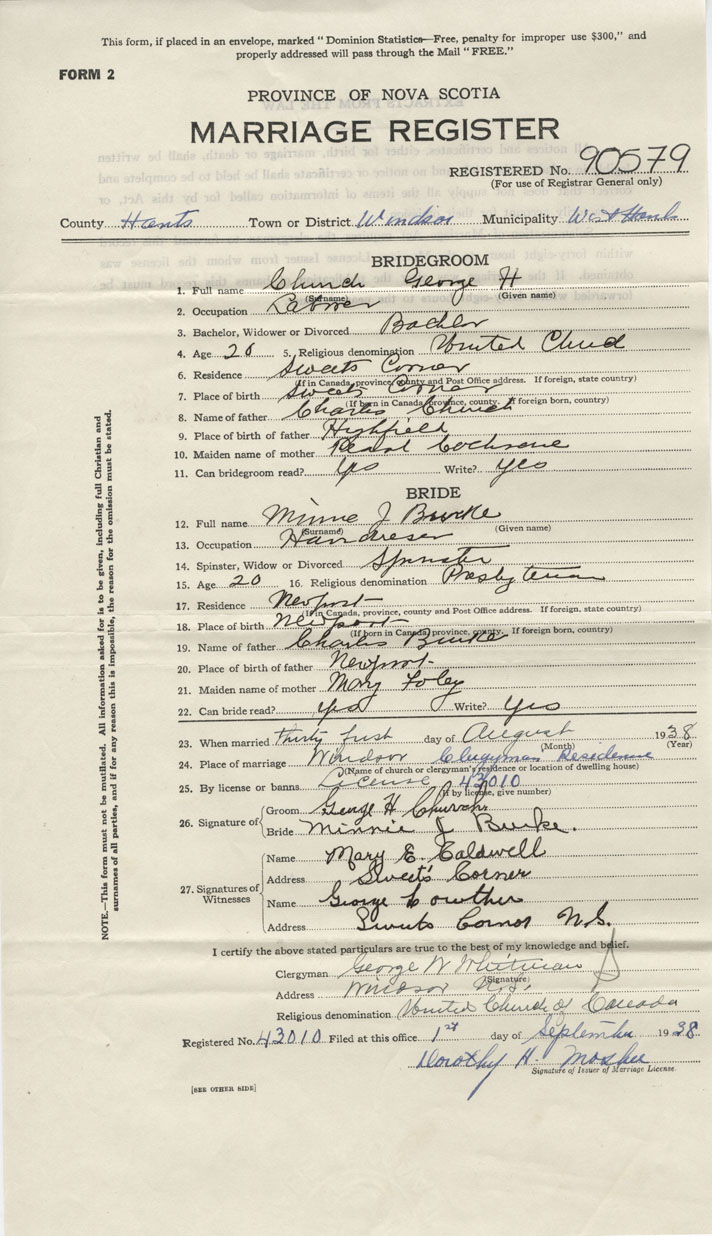 This form, if placed in an envelope, marked "Dominion Statistics—Free, penalty for improper use $300," and
properly addressed will pass through the Mail "FREE."
FORM 2
PROVINCE OF NOVA SCOTIA
MARRIAGE REGISTER
REGISTERED No. 90579
(For use of Registrar General only)
County Hants Town or District Windsor Municipality West Hants
BRIDEGROOM
1. Full name Church George H
(Surname) (Given name)
2. Occupation Laborer
3. Bachelor, Widower or Divorced Bachler
4. Age 20 5. Religious denomination United Chuch
6. Residence Sweets Corner
(If in Canada, province, county and Post Office address. If foreign, state country)
7. Place of birth Sweets Corner
(If born in Canada, province, county. If foreign born, country)
8. Name of father Charles Church
9. Place of birth of father Highfield
10. Maiden name of mother Pearl Cochrane
11. Can bridegroom read? Yes Write? Yes
BRIDE
12. Full name Minnie J Burke
(Surname) (Given name)
13. Occupation
14. Spinster, Widow or Divorced Spinster
15. Age 20 16. Religious denomination Presbyterian
17. Residence Newport
(If in Canada, province, county and Post Office address. If foreign, state country)
18. Place of birth Newport
(If born in Canada, province, county. If foreign born, country)
19. Name of father Charles Burke
20. Place of birth of father Newport
21. Maiden name of mother Mary Foley
22. Can bride read? Yes Write? Yes
23. When married thirty first day of August 1938
(Month) (Year)
24. Place of marriage Windsor Clergyman Residence
(Name of church or clergyman's residence or location of dwelling house)
25. By license or banns License 43010
(If by license, give number)
26. Signature of
Groom George H Church
Bride Minnie J Burke.
27. Signatures of Witnesses
Name Mary E. Caldwell
Address Sweet's Corner
Name George Lowther
Address Sweets Corner N.S.
I certify the above stated particulars are true to the best of my knowledge and belief.
Clergyman George W Whitman
(Signature)
Address Windsor N.S.
Religious denomination United Church of Canada
Registered No. 43010 Filed at this office 1st day of September 1938
Dorothy H. Mosher
Signature of Issuer of Marriage License.
[SEE OTHER SIDE]
NOTE.—This form must not be mutilated. All information asked for is to be given, including full Christian and
surnames of all parties, and if for any reason this is impossible, the reason for the omission must be stated.